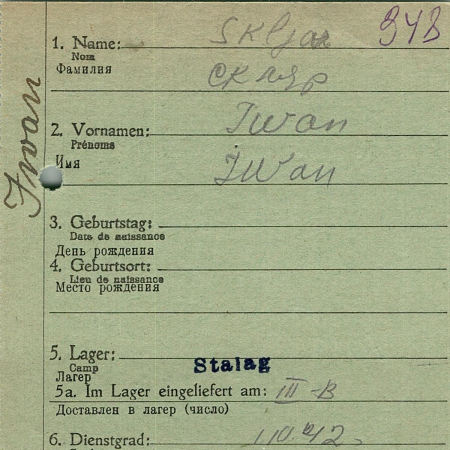 1. Name: Skljar 948
Nom
Фамилия Скляр
2. Vornamen: Iwan
Prénoms
Имя Iwan
Iwan
3. Geburtstag:
Date de naissance
День рождения
4. Geburtsort:
Lieu de naissance
Место рождения
5. Lager: Stalag
Camp
Лагер
5a. Im Lager eingeliefert am: III-B
Доставлен в лагер (число)
6. Dienstgrad: